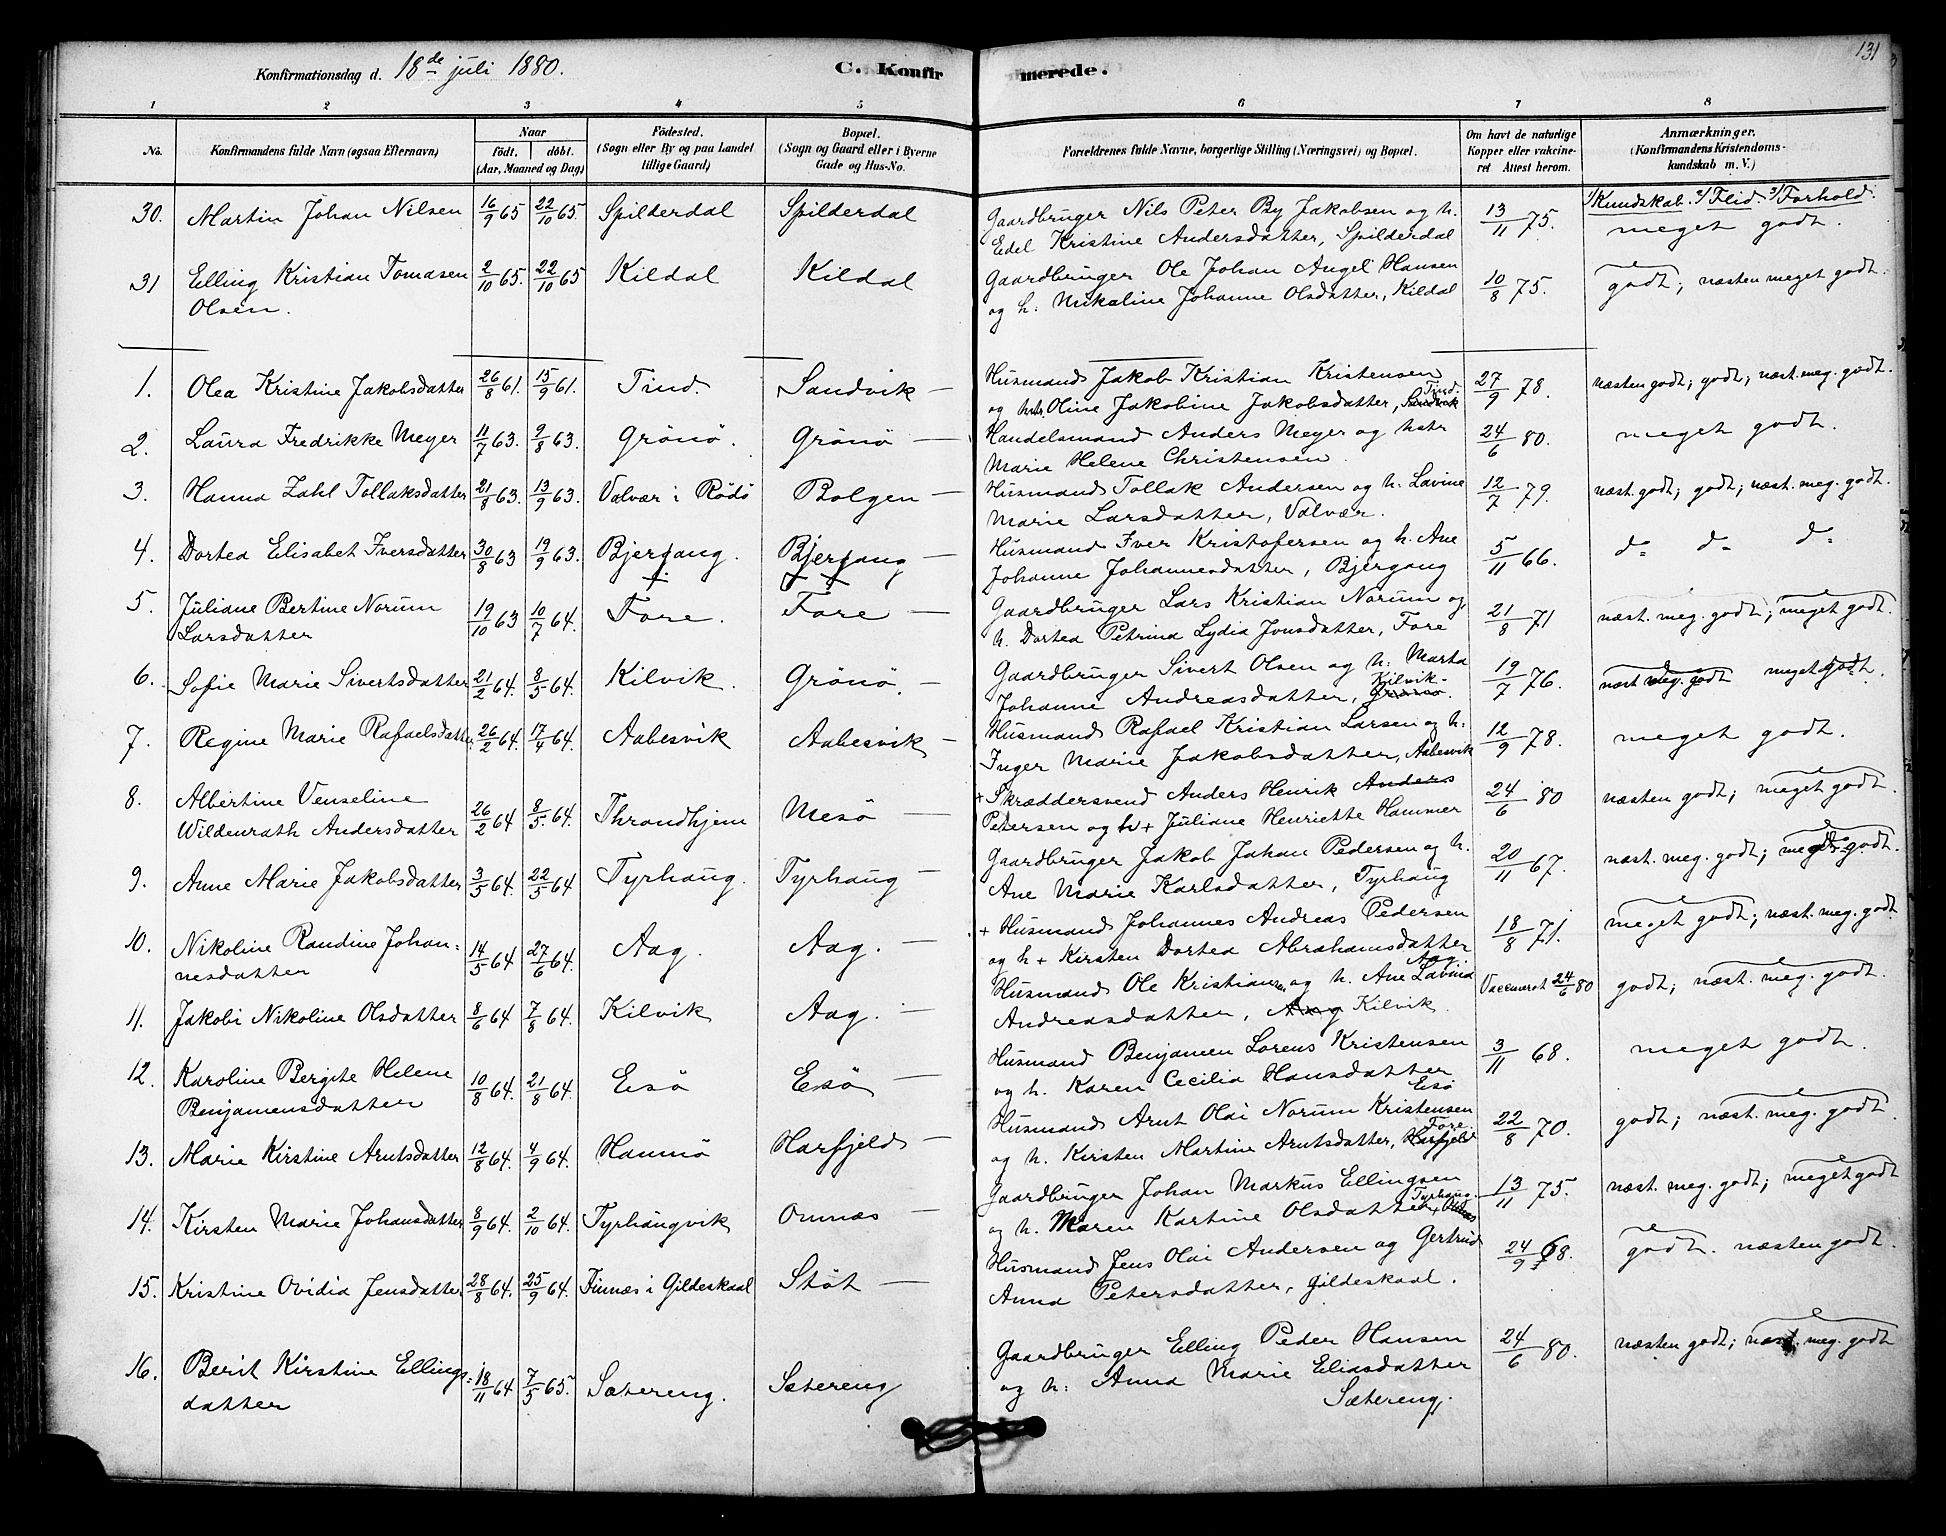 131
Konfirmationsdag d. 18de juli 1880. C. Konfirmerede.
1 2 3 4 5 6 7 8
No. Konfirmandens fulde Navn (ogsaa Efternavn) Naar født. døbt. (Aar, Maaned og Dag) Fødested. (Sogn eller By og paa Landet tillige Gaard) Bopæl. (Sogn og Gaard eller i Byerne Gade og Hus-No. Forældrenes fulde Navne, borgerlige Stilling (Næringsvei) og Bopæl. Om havt de naturlige Kopper eller vakcineret Attest herom. Anmærkninger. (Konfirmandens Kristendomskundskab m. V.)
1/Kundskab. 2/Flid. 3/Forhold.
30. Martin Johan Nilsen 16/9 65 22/10 65. Spilderdal Spilderdal Gaardbruger Nils Peter By Jakobsen og h. 13/11 75. meget godt.
Edel Kristine Andersdatter, Spilderdal
31 Elling Kristian Tomasen 2/10 65. 22/10 65 Kildal Kildal Gaardbruger Ole Johan Angel Hansen 10/8 75. godt; næsten meget godt.
Olsen. og h. Nikaline Johanne Olsdatter, Kildal
1. Olea Kristine Jakobsdatter 26/8 61. 15/9 61. Tind. Sandvik Husmand Jakob Kristian Kristensen 27/9 78. næsten godt; godt; næst. meg. godt.
og hstr. Oline Jakobine Jakobsdatter, Sandvik Tind.
2. Laura Fredrikke Meyer 11/7 63. 9/8 63. Grönö. Grönö Handelsmand Anders Meyer og hstr 24/6 80. meget godt.
Marie Helene Christensen.
3. Hanna Zahl Tollaksdatter 21/8 63. 13/9 63. Valvær i Rödö Bolgen Husmand Tollak Andersen og h. Lavine 12/7 79. næst. godt; godt; næst. meg. godt.
Marie Larsdatter, Valvær.
4. Dortea Elisabet Iversdatter 30/8 63 19/9 63. Bjergang. Bjergang Husmand Iver Kristofersen og h. Ane 5/11 66. do do do
Johanne Johannesdatter, Bjergang
5. Juliane Bertine Norum 19/10 63 10/7 64. Fore. Fore Gaardbruger Lars Kristian Norum og 21/8 71 næst. meg. godt; meget godt.
Larsdatter h. Dortea Petrina Lydia Jonsdatter, Fore
6. Sofie Marie Sivertsdatter 21/2 64. 8/5 64. Kilvik. Grönö. Gaardbruger Sivert Olsen og h. Marta 19/7 76. næst meg. godt meget godt.
Johanne Andreasdatter, Grönö. Kilvik
7. Regine Marie Rafaelsdatter 26/2 64. 17/4 64. Aabesvik Aabesvik Husmand Rafael Kristian Larsen og h. 12/9 78. meget godt.
Inger Marie Jakobsdatter, Aabesvik
8. Albertine Venseline 26/2 64 8/5 64. Throndhjem Mesö + Skræddersvend Anders Henrik Anders 24/6 80 næsten godt; meget godt.
Wildenrath Andersdatter Petersen og h + Juliane Henriette Hammer
9. Anne Marie Jakobsdatter 3/5 64. 22/5 64 Tyrhaug. Tyrhaug Gaardbruger Jakob Johan Pedersen og h. 20/11 67. næst. meg. godt; meget godt.
Ane Marie Karlsdatter, Tyrhaug
10. Nikoline Randine Johan= 14/5 64 27/6 64. Aag. Aag. + Husmand Johannes Andreas Pedersen 18/8 71. meget godt; næst. meg. godt
nesdatter og h + Kirsten Dortea Abrahamsdatter Aag.
11. Jakobi Nikoline Olsdatter 8/6 64 7/8 64. Kilvik Aag. Husmand Ole Kristiansen og h. Ane Lavina Vaccineret 24/6 80 godt; næst. meg. godt.
Andreasdatter, Aag Kilvik.
12. Karoline Bergite Helene 10/8 64. 21/8 64. Esö Esö Husmand Benjamen Lorens Kristensen 3/11 68. meget godt.
Benjamensdatter og h. Karen Cecilia Hansdatter Esö
13. Marie Kirstine Arntsdatter 12/8 64. 4/9 64. Hannö Harfjeld Husmand Arnt Olai Norum Kristensen 22/8 70. godt; næst. meg. godt
og h. Kirsten Martine Arntsdatter, Harfjeld Fore.
14. Kirsten Marie Johansdatter 8/9 64. 2/10 64. Tyrhaugvik Ornnæs Gaardbruger Johan Markus Ellingsen 13/11 75. næst. meg. godt; meget godt
og h. Maren Kartine Olsdatter Tyrhaug
15. Kristine Ovidia Jensdatter 28/8 64. 25/9 64. Finnæs i Gildeskaal Stöt Husmand Jens Olai Andersen og Gertrud 24/9 68. godt. næsten godt.
Anna Petersdatter, Gildeskaal.
16. Berit Kirstine Ellings= 18/11 64 7/5 65. Sætereng. Sætereng Gaardbruger Elling Peder Hansen 24/6 80. næsten godt; næst. meg. godt
datter og h: Anna Marie Eliasdatter
Sætereng.